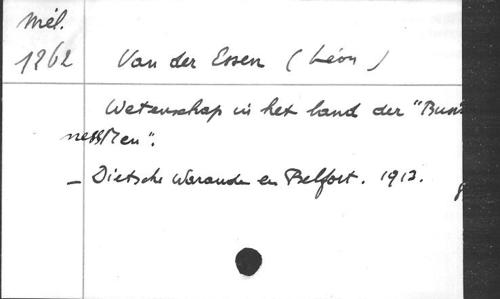 Mél.
1262 Van der Essen (Léon)
Wetenschap in het land der "Busi
nessMen".
- Dietsche Warande en Belfort. 1912.